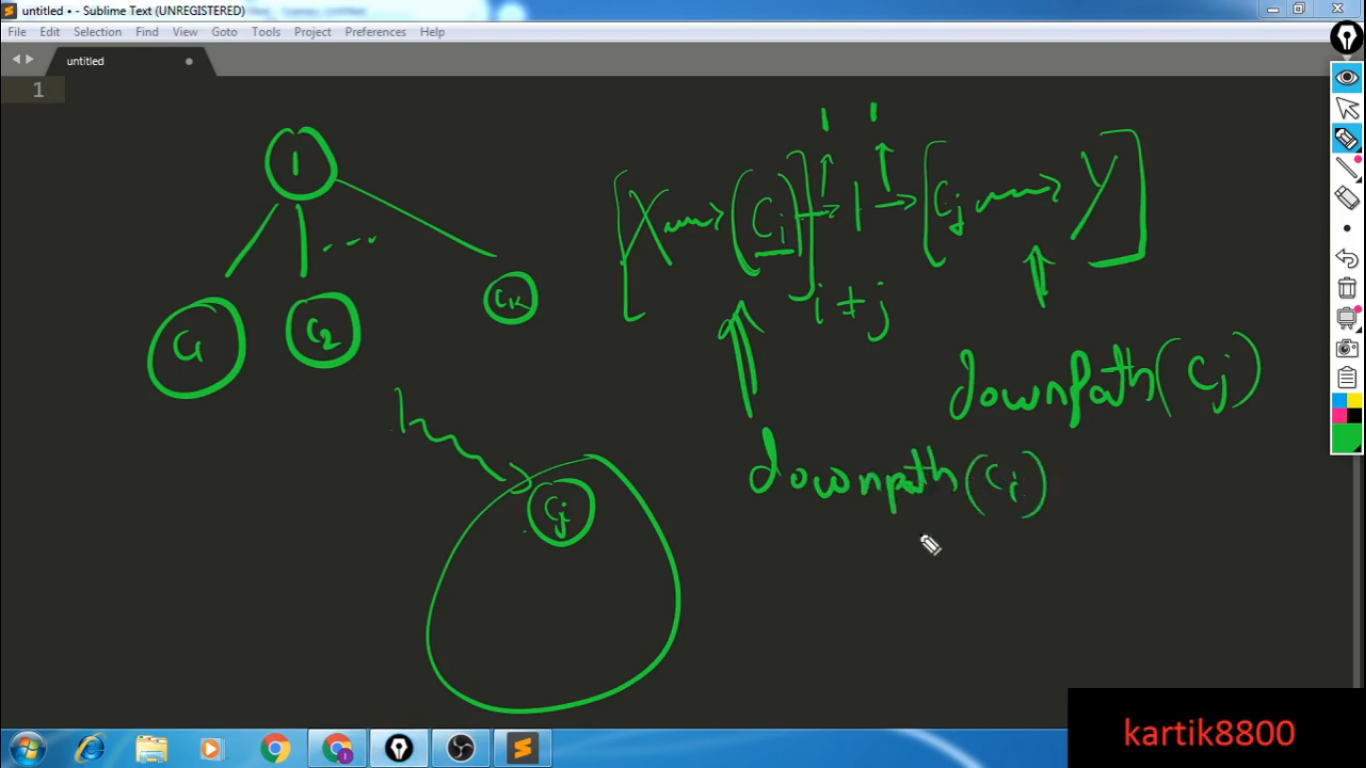 untitled • - Sublime Text (UNREGISTERED)
File Edit Selection Find View Goto Tools Project Preferences Help
untitled
1
1
C1 C2 --- CK
1 1
[X → (Ci)] → 1 → [Cj → Y]
i ≠ j
downpath(Cj)
downpath(Ci)
Cj
kartik8800